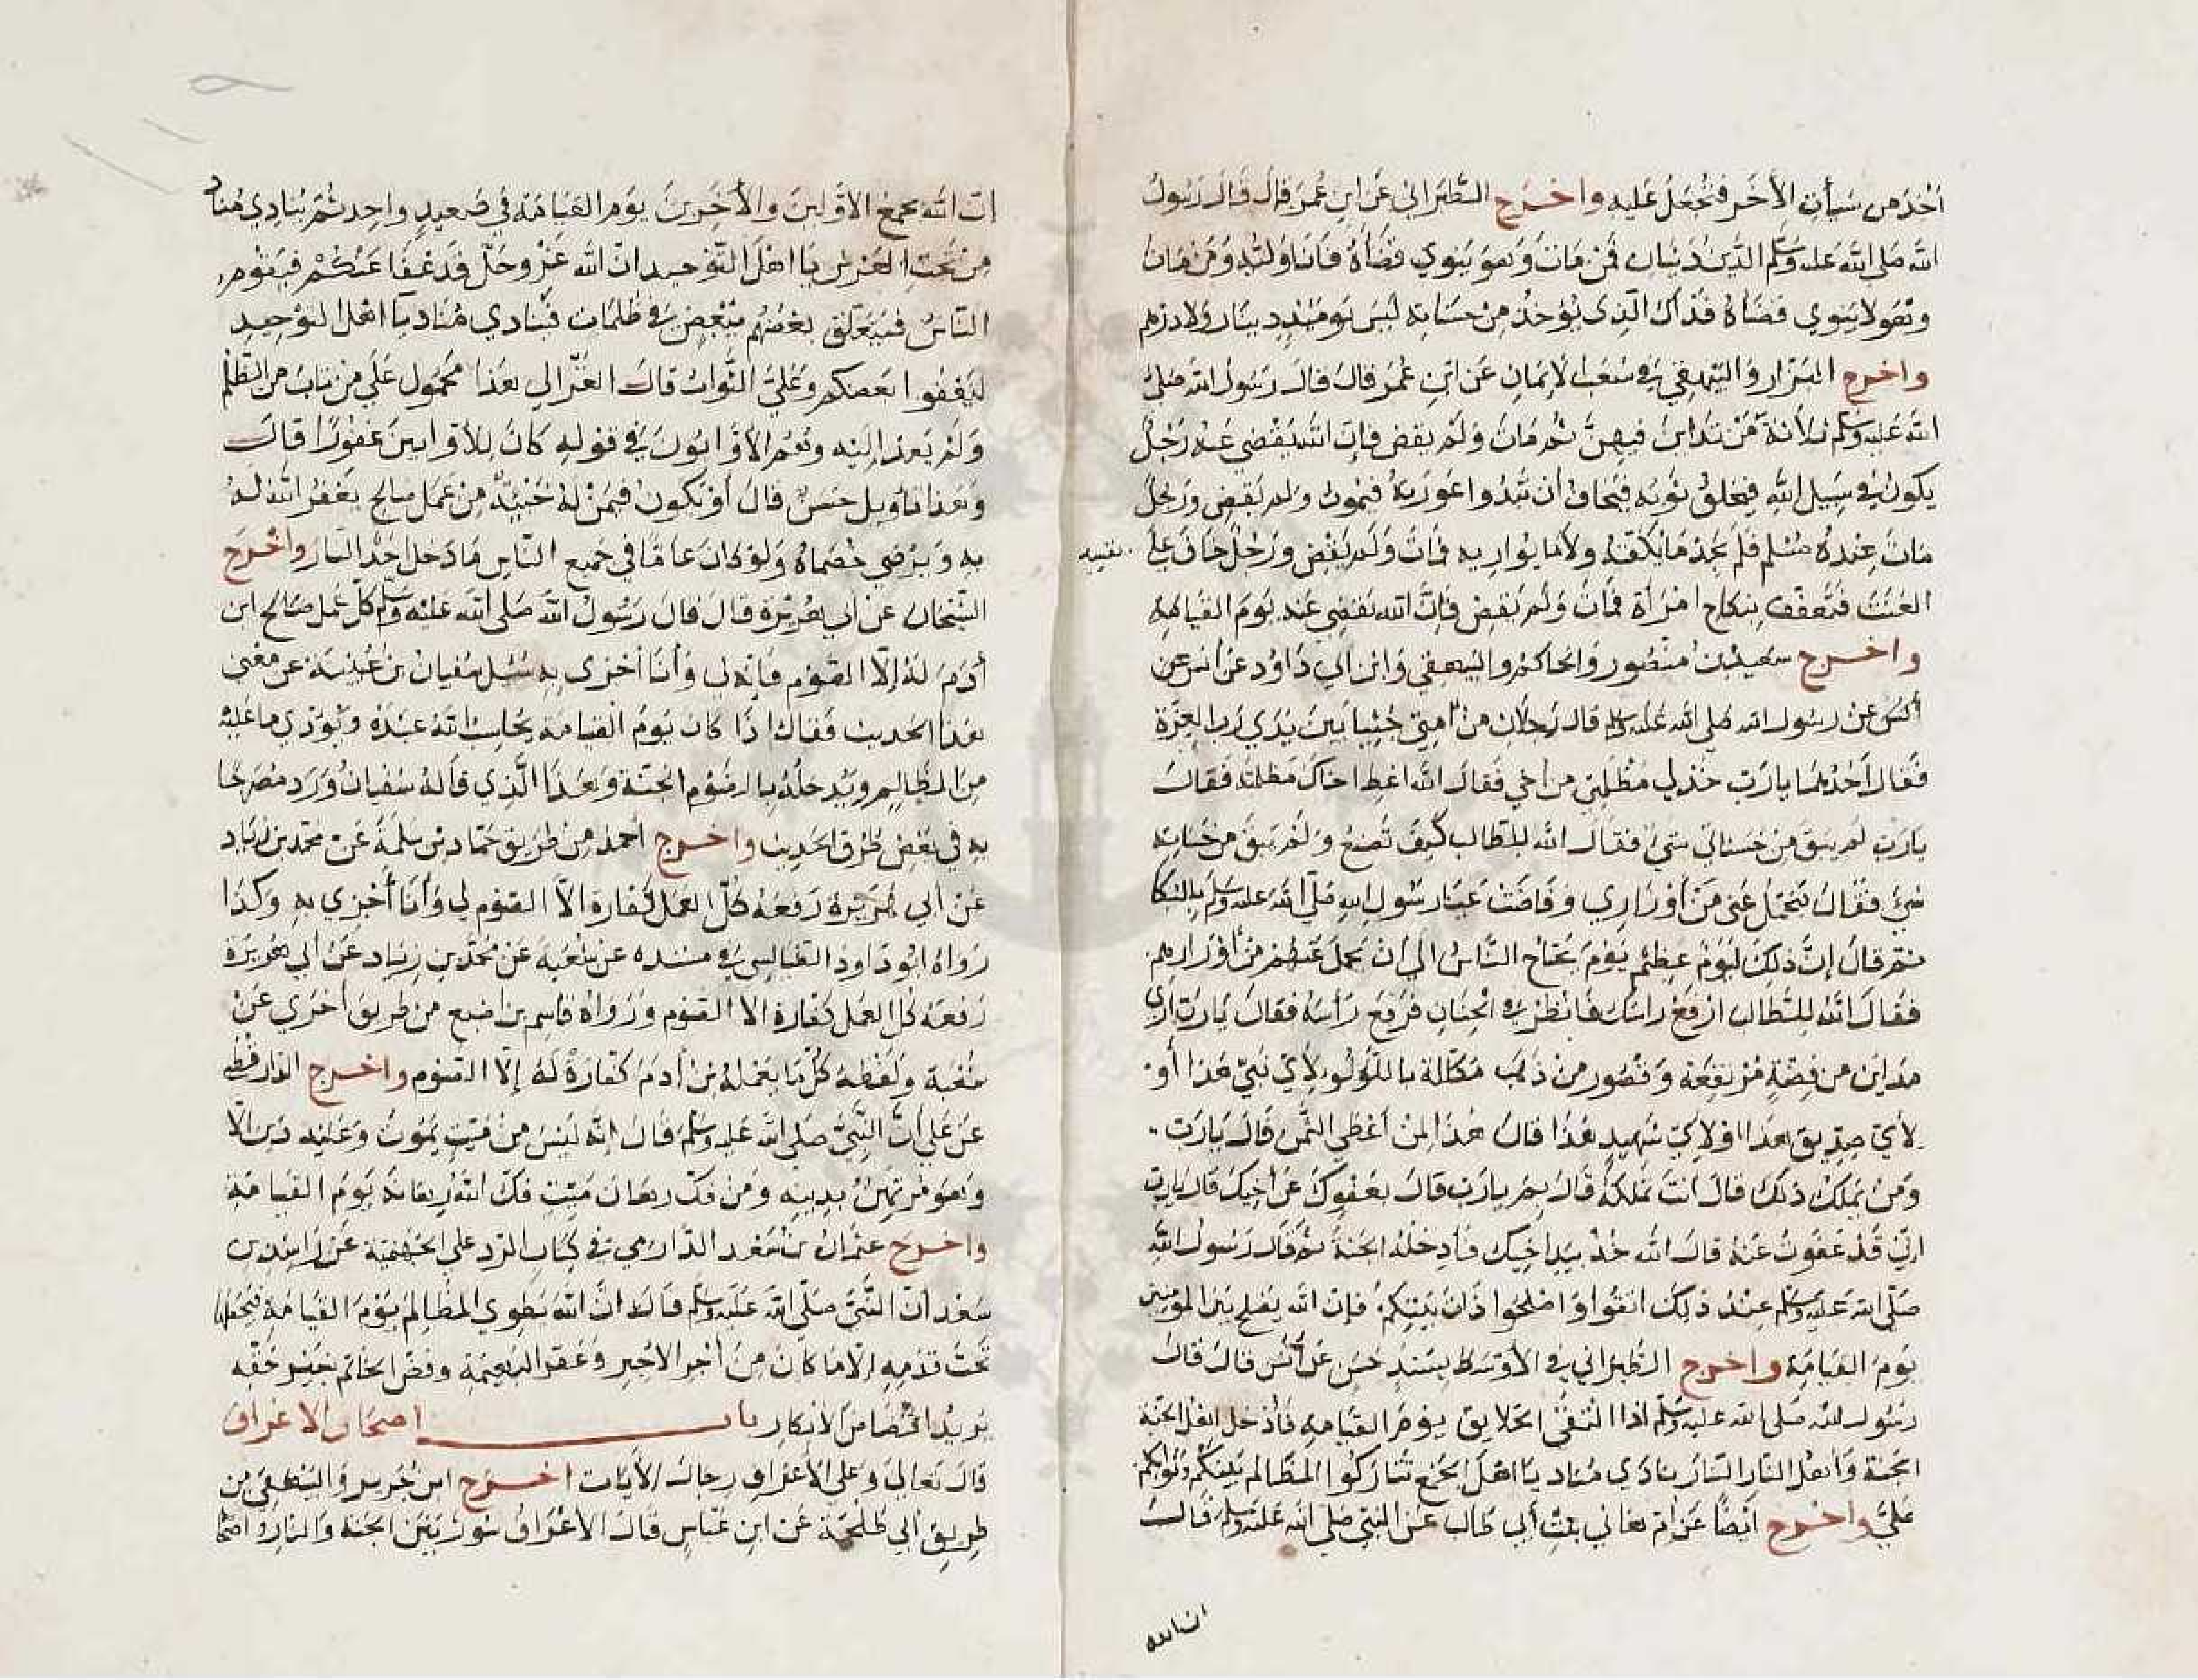 أخذ من سيأت الأخر فتجعل عليه واخرج الطبراني عن ابن عمر قال قال رسول
الله صلى الله عليه وسلم الدين دينان فمن مات وهو ينوي قضأه فأنا وليه ومن مات
وهو لا ينوي قضأه فذاك الذى يؤخذ من حسناته ليس يومئذ دينار ولا درهم
واخرج البزار والبيهقي في شعب الإيمان عن ابن عمر قال قال رسول الله صلى
الله عليه وسلم ثلاثة من تداين فيهن ثم مات ولم يقض فإن الله يقضي عنه رجل
يكون في سبيل الله فيخلق ثوبه فيخاف أن تبدوا عورته فيموت ولم يقض ورجل
مات عنده مسلم فلم يجد ما يكفنه ولا ما يواريه فمات ولم يقض ورجل خاف على نفسه
العنت فتعفف بنكاح امرأة فمات ولم يقض فإن الله يقضي عنه يوم القيامة
واخرج سعيد بن منصور والحاكم والبيهقي وابن ابي داود عن انس عن
أنس عن رسول الله صلى الله عليه وسلم قال رجلان من امتي جثيا بين يدي رب العزة
فقال أحدهما يا رب خذ لي مظلمتي من أخي فقال الله اعط اخاك مظلمته فقال
يا رب لم يبق من حسناتي شيء فقال الله للطالب كيف تصنع ولم يبق من حسناته
شيء فقال يتحمل عني من أوزاري وفاضت عينا رسول الله صلى الله عليه وسلم بالبكا
ثم قال إن ذلك ليوم عظيم يوم يحتاج الناس الى ان يحمل عنهم من أوزارهم
فقال الله للطالب ارفع راسك فانظر في الجنان فرفع رأسه فقال يا رب أرى
مداين من فضة مرتفعة وقصور من ذهب مكللة باللؤلؤ لأي نبي هذا أو
لأي صديق هذا او لأي شهيد هذا قال هذا لمن أعطى الثمن قال يا رب
ومن يملك ذلك قال انت تملكه قال بم يا رب قال بعفوك عن أخيك قال يا رب
اني قد عفوت عنه قال الله خذ بيد اخيك فأدخله الجنة ثم قال رسول الله
صلى الله عليه وسلم عند ذلك اتقوا واصلحوا ذات بينكم فإن الله يصلح بين المومنين
يوم القيامة واخرج الطبراني في الأوسط بسند حسن عن أنس قال قال
رسول الله صلى الله عليه وسلم اذا التقى الخلايق يوم القيامة فأدخل اهل الجنة
الجنة وأهل النار النار ينادي مناد يا اهل الجمع تتاركوا المظالم بينكم وثوابكم
علي واخرج ايضا عن ام هاني بنت أبي طالب عن النبي صلى الله عليه وسلم قالت
ان الله
إن الله يجمع الاولين والأخرين يوم القيامة في صعيد واحد ثم ينادي مناد
من تحت العرش يا اهل التوحيد ان الله عز وجل قد عفا عنكم فيقوم
الناس فيتعلق بعضهم ببعض في ظلمات فينادي مناد يا اهل التوحيد
ليعفوا بعضكم وعلي الثواب قال الغزالي هذا محمول على من تاب من الظلم
ولم يعد اليه وهم الأوابون في قوله كان للأوابين غفورا قال
وهذا تاويل حسن قال أو يكون فيمن له خبيئة من عمل صالح يغفر الله له
به ويرضي خصماه ولو كان عاما في جميع الناس ما دخل احد النار واخرج
الشيخان عن أبي هريرة قال قال رسول الله صلى الله عليه وسلم كل عمل صالح ابن
أدم له إلا الصوم فإنه لي وأنا أجزى به سئل سفيان بن عيينة عن معنى
هذا الحديث فقال اذا كان يوم القيامة يحاسب الله عبده ويؤدي ما عليه
من المظالم ويدخله بالصوم الجنة وهذا الذي قاله سفيان ورد مصرحا
به في بعض طرق الحديث واخرج أحمد من طريق حماد بن سلمة عن محمد بن زياد
عن أبي هريرة رفعه كل العمل كفارة الا الصوم لي وأنا أجزي به وكذا
رواه ابو داود الطيالسي في مسنده عن شعبة عن محمد بن زياد عن ابي هريرة
رفعه كل العمل كفارة الا الصوم ورواه قاسم بن اصبغ من طريق أخرى عن
شعبة ولفظه كل ما يعمله بن أدم كفارة له إلا الصوم واخرج الدارقطني
عن علي أن النبي صلى الله عليه وسلم قال إنه ليس من ميت يموت وعليه دين الا
وهو مرتهن بدينه ومن فك رهان ميت فك الله رهانه يوم القيامة
واخرج عثمان بن سعد الدارمي في كتاب الرد على الجهمية عن راشد بن
سعد ان النبي صلى الله عليه وسلم قال ان الله يطوي المظالم يوم القيامة فيجعلها
تحت قدمه إلا ما كان من أجر الأجير وعقر البهيمة وفض الخاتم بغير حقه
يريد افتضاض الابكار باب اصحاب الاعراف
قال تعالى وعلى الأعراف رجال الأيات اخرج ابن جرير والبيهقي من
طريق ابي طلحة عن ابن عباس قال الأعراف سور بين الجنة والنار واصحا